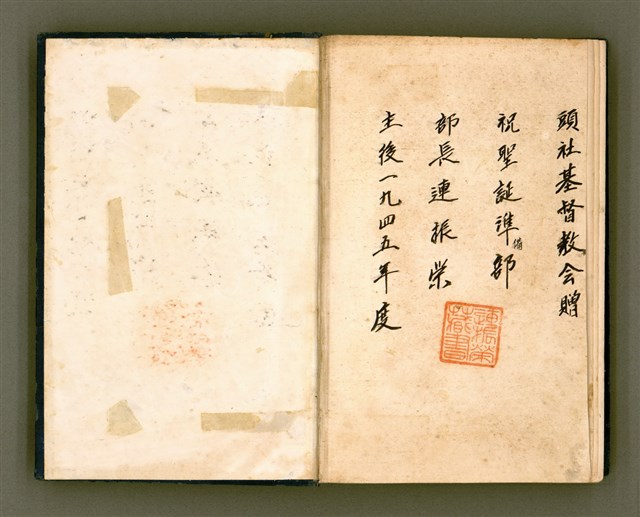 頭社基督教会贈
祝聖誕準備部
部長連振栄
主後一九四五年度
連振榮
藏書